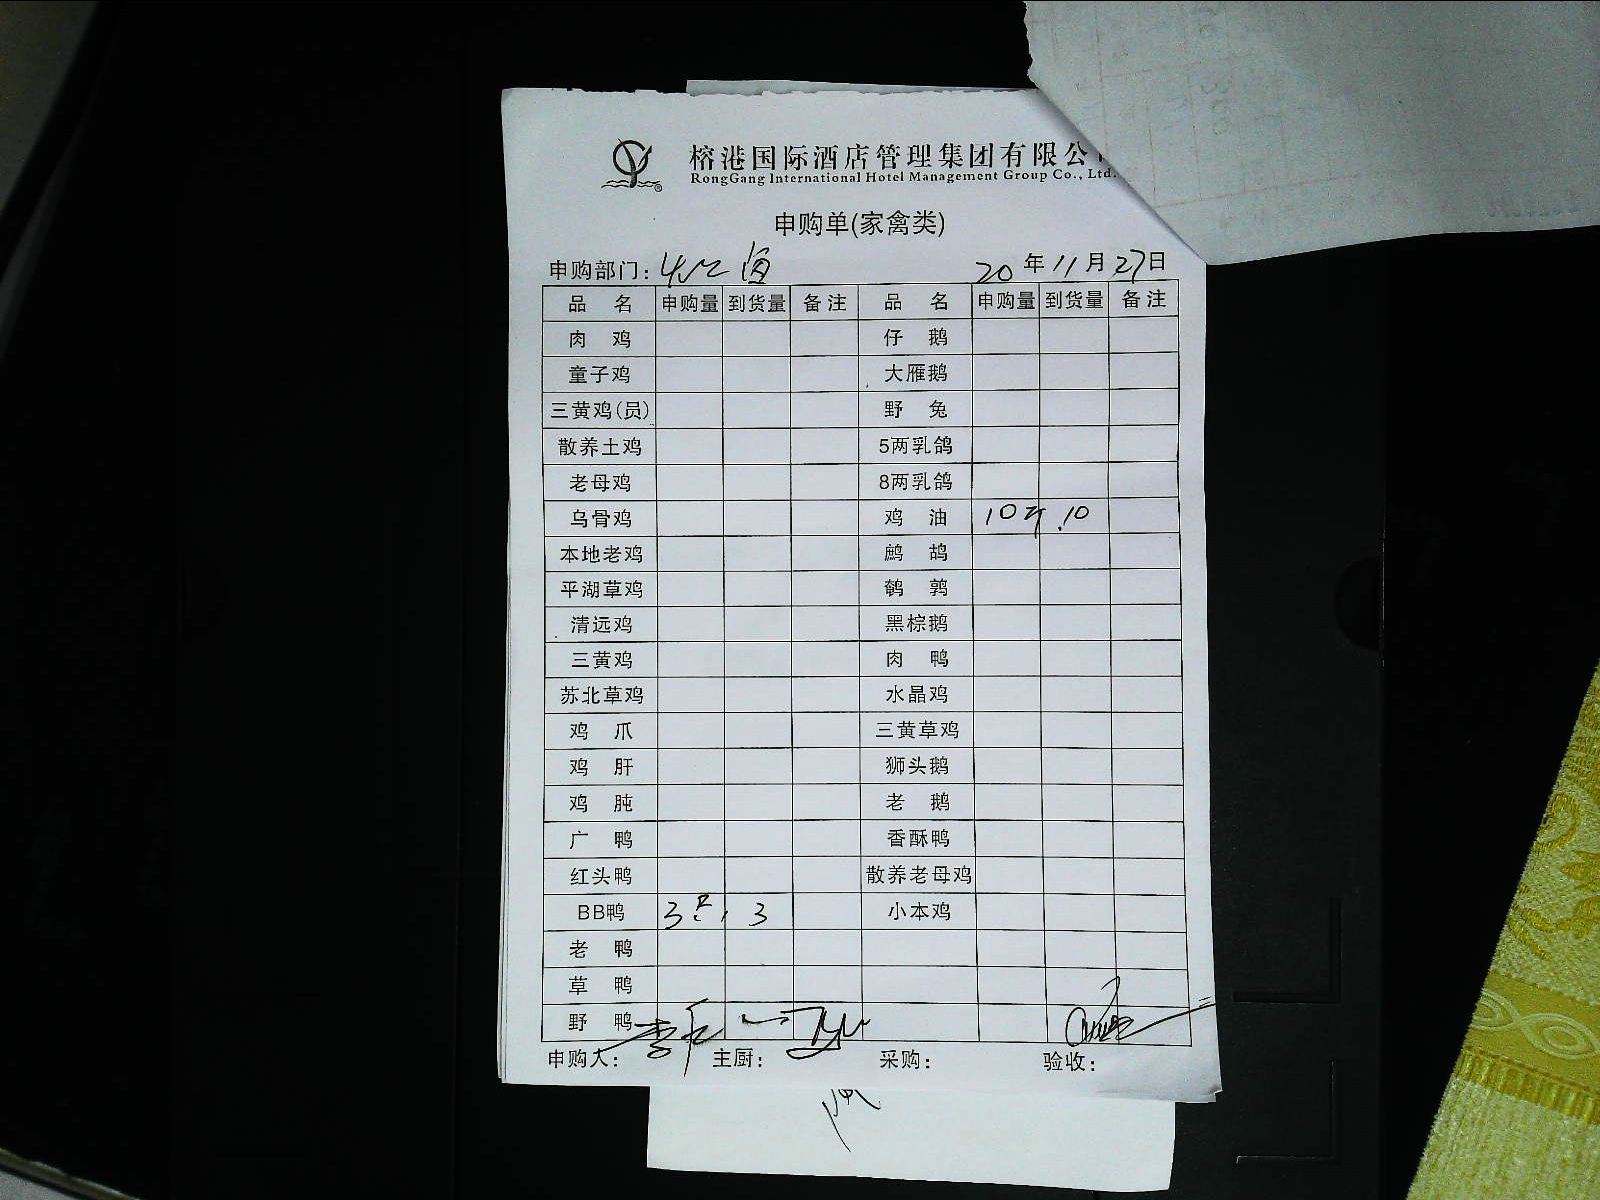 榕港国际酒店管理集团有限公
RongGang International Hotel Management Group Co., Ltd.
申购单(家禽类)
申购部门: 20年11月27日
品 名 申购量 到货量 备注 品 名 申购量 到货量 备注
肉 鸡 仔 鹅
童子鸡 大雁鹅
三黄鸡(员) 野 兔
散养土鸡 5两乳鸽
老母鸡 8两乳鸽
乌骨鸡 鸡 油 10斤 10
本地老鸡 鹧 鸪
平湖草鸡 鹌 鹑
清远鸡 黑棕鹅
三黄鸡 肉 鸭
苏北草鸡 水晶鸡
鸡 爪 三黄草鸡
鸡 肝 狮头鹅
鸡 肫 老 鹅
广 鸭 香酥鸭
红头鸭 散养老母鸡
BB鸭 3只 3 小本鸡
老 鸭
草 鸭
野 鸭
申购人: 主厨: 采购: 验收: